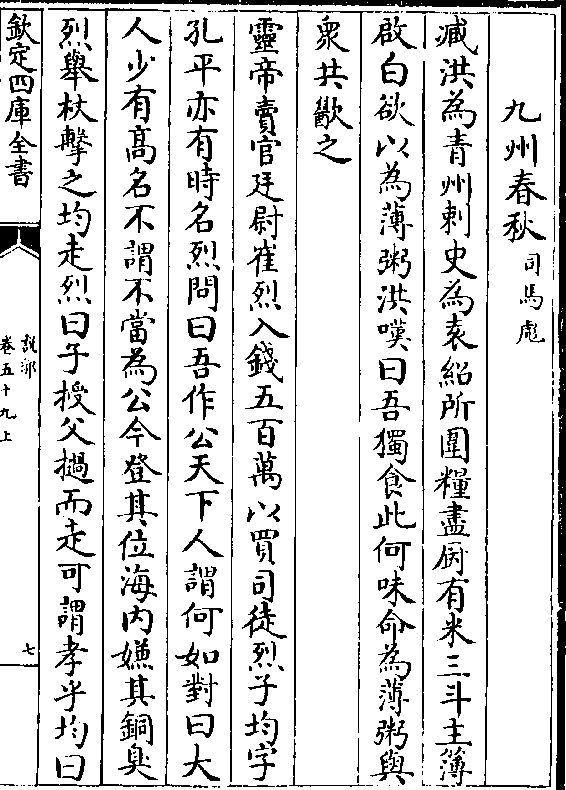 九州春秋 司馬彪
臧洪為青州刺史為袁紹所圍糧盡厨有米三斗主薄
啟白欲以為薄粥洪嘆曰吾獨食此何味命為薄粥與
衆共歠之
靈帝賣官廷尉崔烈入錢五百萬以買司徒烈子均字
孔平亦有時名烈問曰吾作公天下人謂何如對曰大
人少有髙名不謂不當為公今登其位海内嫌其銅臭
烈舉杖擊之均走烈曰子授父撾而走可謂孝乎均曰
欽定四庫全書
說郛
卷五十九上
七